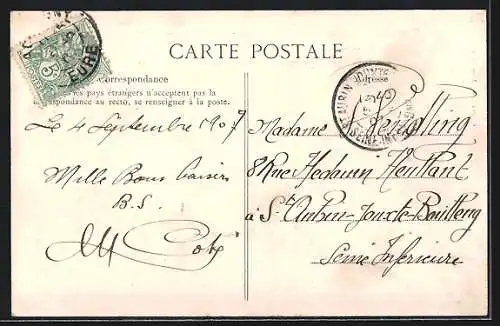 CARTE POSTALE
Correspondance
les pays étrangers n'acceptent pas la
correspondance au recto, se renseigner à la poste.
Adresse
EURE
5
ST AUBIN JOUXTE
SEINE INF
Le 4 Septembre 1907
Mille Bons baisers
B.S.
Madame
8 Rue
à St Aubin-Jouxte-Boulleng
Seine Inférieure